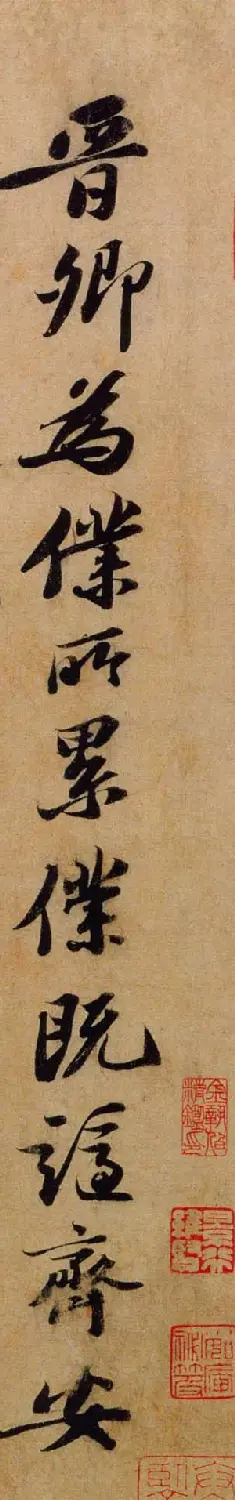 晉卿為僕所累僕既謫齊安